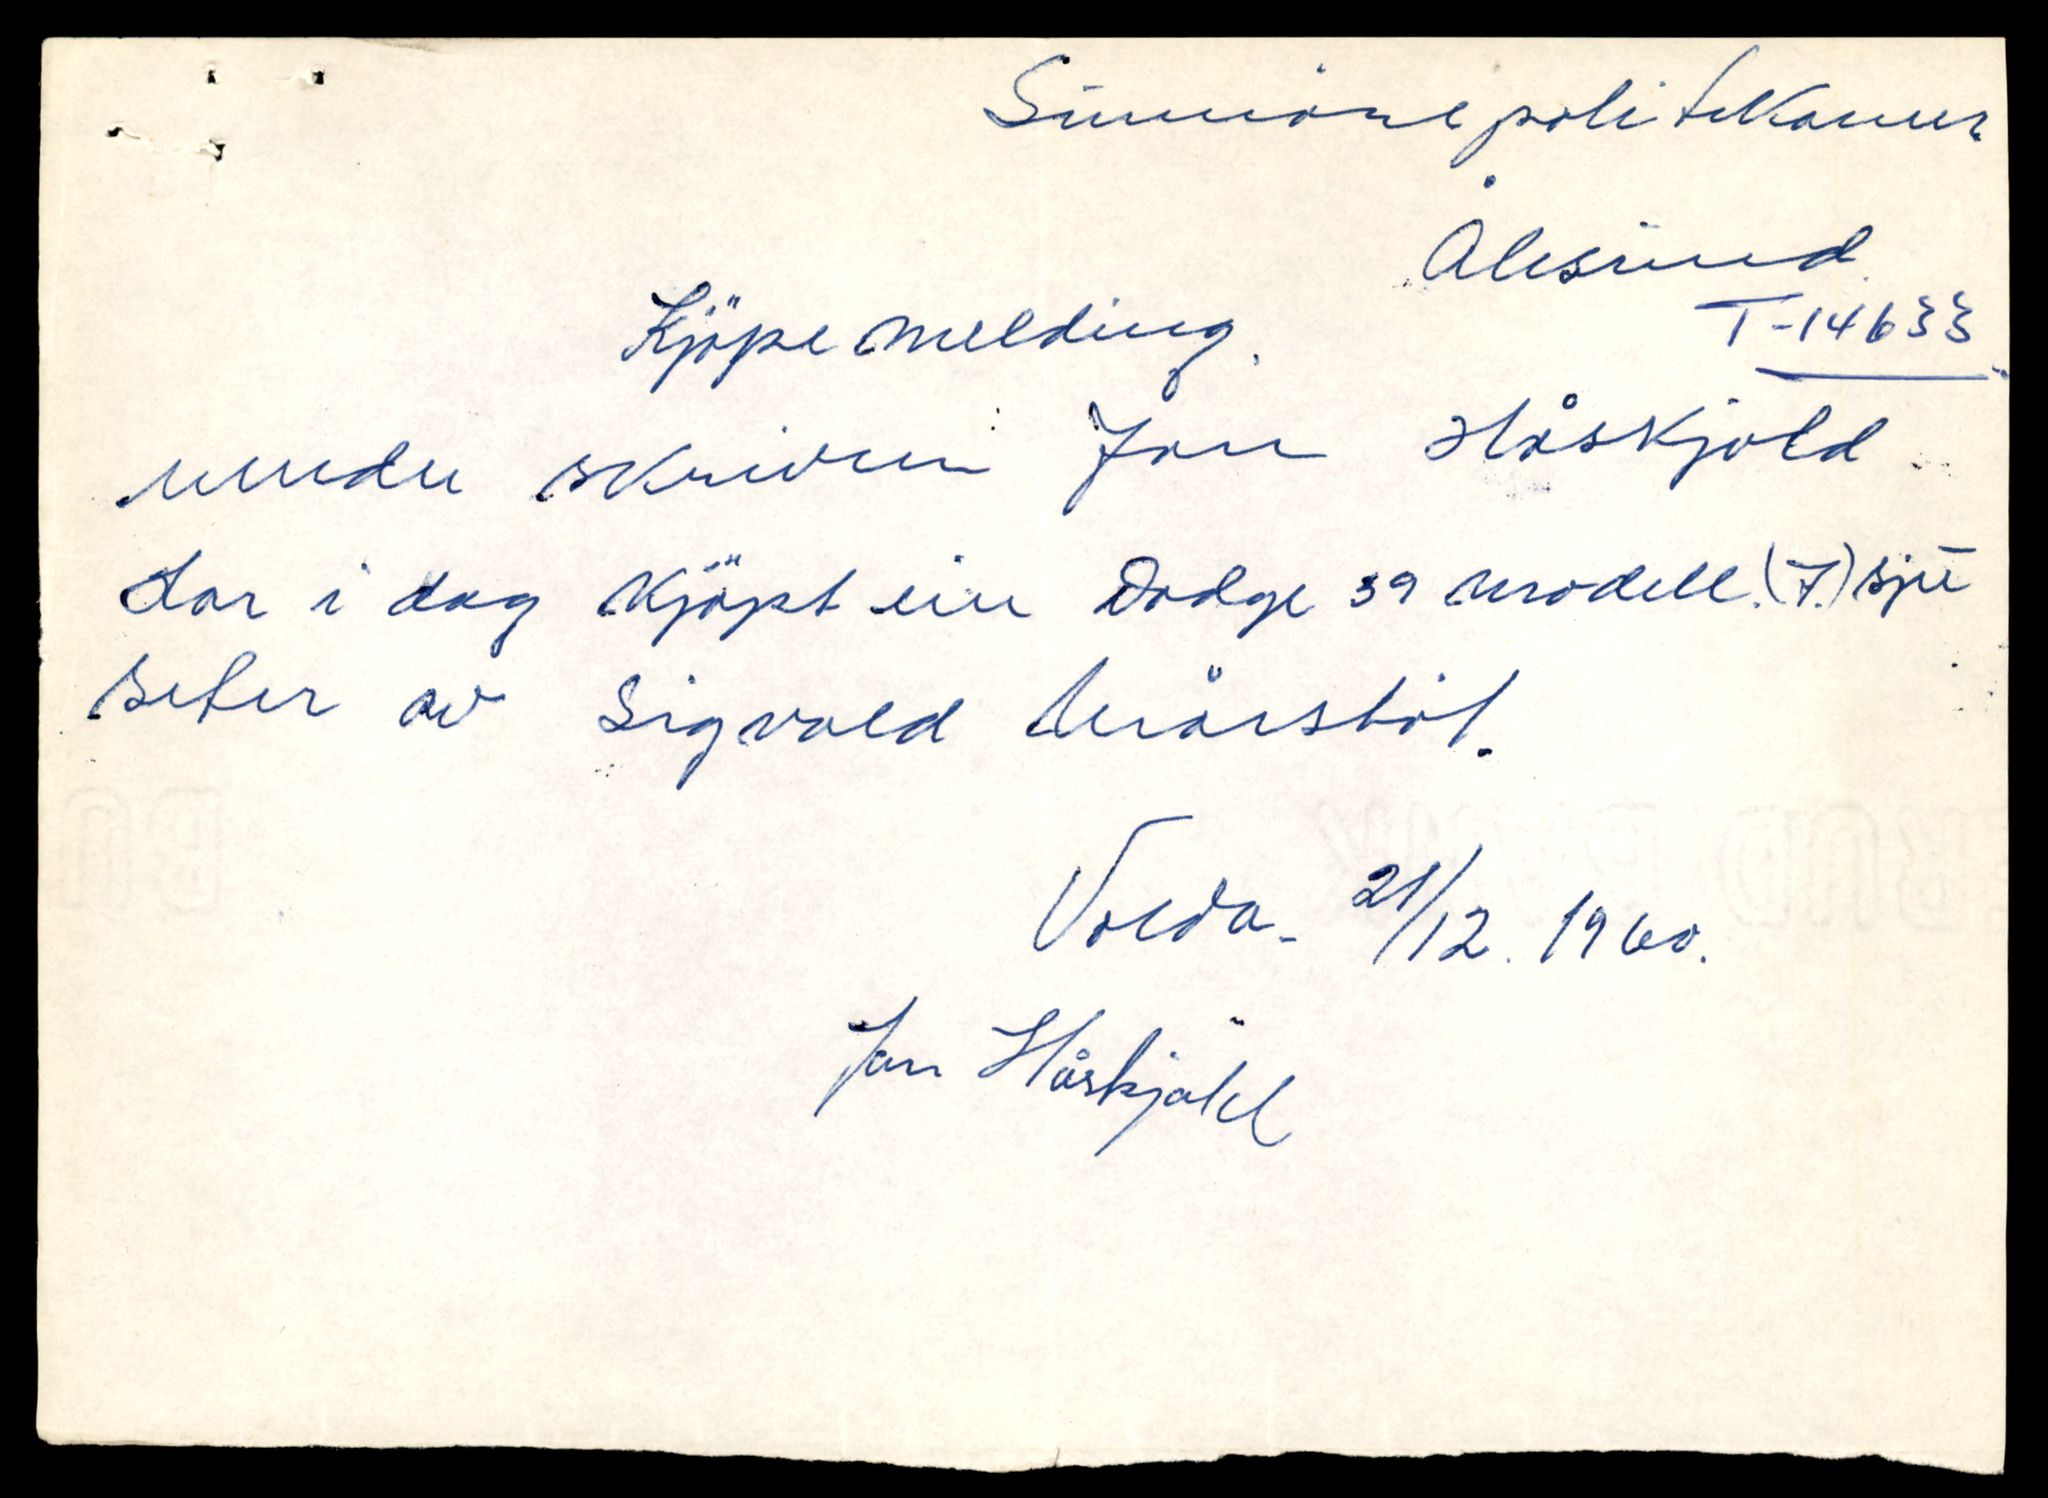 Sunnmöre politikamer
Ålesund
Kjöpe melding.
T-14633
under skriven Jon Håskjold
har i dag kjöpt ein Dodge 39 modell. (7.) sju
seter av Sigvald Mörstöl.
Volda - 21/12. 1960.
Jon Håskjold